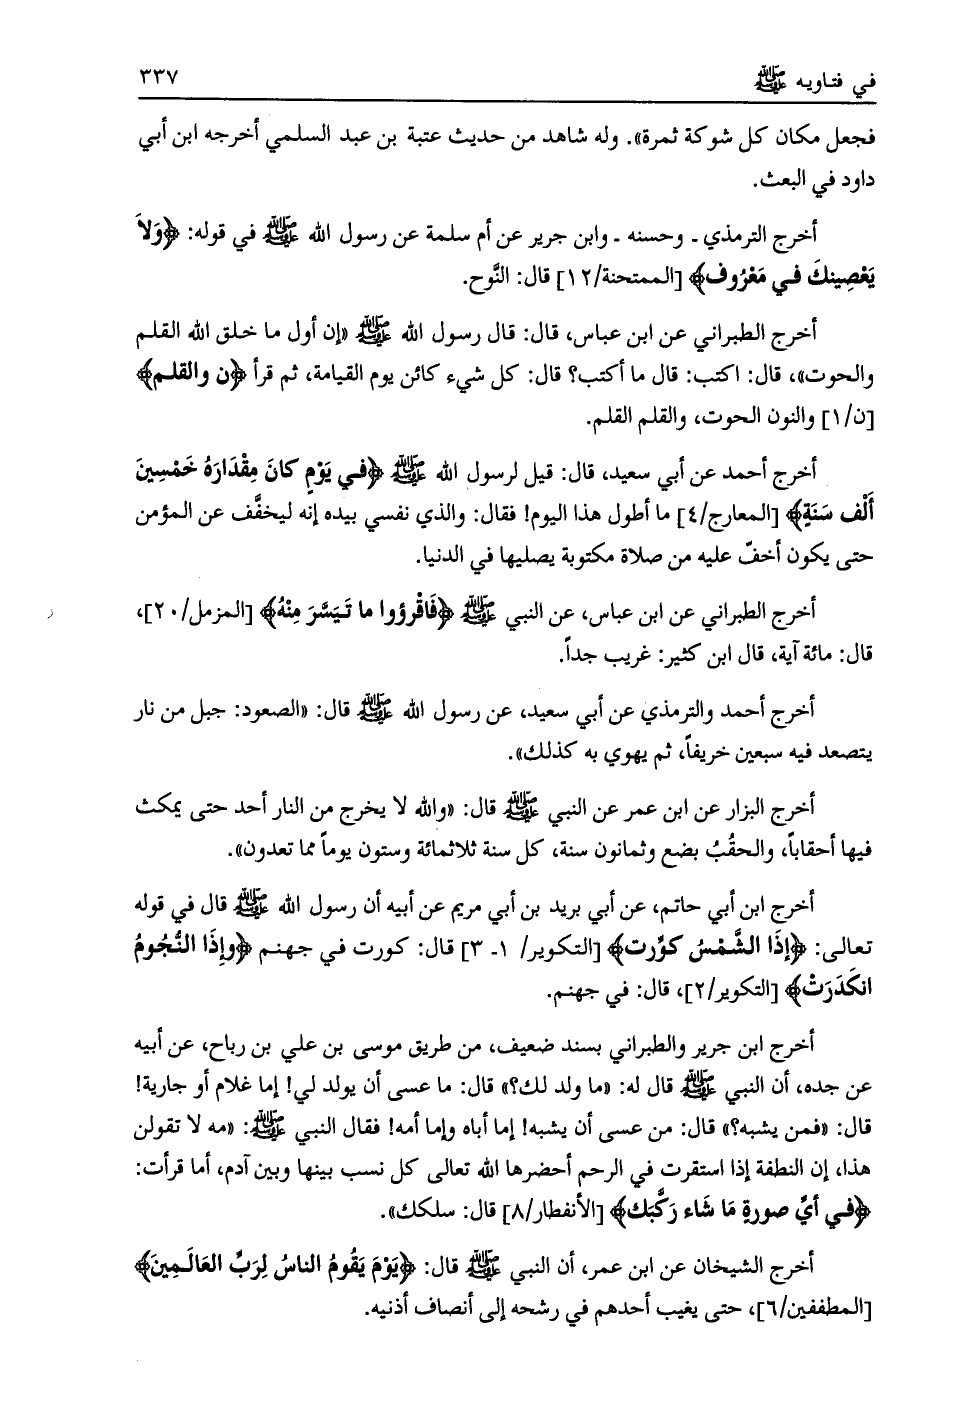 في فتاويه ﷺ ٣٣٧
فجعل مكان كل شوكة ثمرة». وله شاهد من حديث عتبة بن عبد السلمي أخرجه ابن أبي
داود في البعث.
أخرج الترمذي ـ وحسنه ـ وابن جرير عن أم سلمة عن رسول الله ﷺ في قوله: ﴿وَلاَ
يَعْصِينكَ في مَعْرُوف﴾ [الممتحنة/١٢] قال: النَّوح.
أخرج الطبراني عن ابن عباس، قال: قال رسول الله ﷺ «إن أول ما خلق الله القلم
والحوت»، قال: اكتب: قال ما أكتب؟ قال: كل شيء كائن يوم القيامة، ثم قرأ ﴿ن والقلم﴾
[ن/١] والنون الحوت، والقلم القلم.
أخرج أحمد عن أبي سعيد، قال: قيل لرسول الله ﷺ ﴿في يَوْمٍ كانَ مِقْدَارَهُ خَمْسِينَ
أَلْف سَنَةٍ﴾ [المعارج/٤] ما أطول هذا اليوم! فقال: والذي نفسي بيده إنه ليخفَّف عن المؤمن
حتى يكون أخفّ عليه من صلاة مكتوبة يصليها في الدنيا.
أخرج الطبراني عن ابن عباس، عن النبي ﷺ ﴿فَاقْرؤوا ما تَيَسَّرَ مِنْهُ﴾ [المزمل/٢٠]،
قال: مائة آية، قال ابن كثير: غريب جداً.
أخرج أحمد والترمذي عن أبي سعيد، عن رسول الله ﷺ قال: «الصعود: جبل من نار
يتصعد فيه سبعين خريفاً، ثم يهوي به كذلك».
أخرج البزار عن ابن عمر عن النبي ﷺ قال: «والله لا يخرج من النار أحد حتى يمكث
فيها أحقاباً، والحقُبُ بضع وثمانون سنة، كل سنة ثلاثمائة وستون يوماً مما تعدون».
أخرج ابن أبي حاتم، عن أبي بريد بن أبي مريم عن أبيه أن رسول الله ﷺ قال في قوله
تعالى: ﴿إذَا الشَّمْسُ كوِّرت﴾ [التكوير/ ١ـ ٣] قال: كورت في جهنم ﴿وإِذَا النُّجُومُ
انكَدَرَتْ﴾ [التكوير/٢]، قال: في جهنم.
أخرج ابن جرير والطبراني بسند ضعيف، من طريق موسى بن علي بن رباح، عن أبيه
عن جده، أن النبي ﷺ قال له: «ما ولد لك؟» قال: ما عسى أن يولد لي! إما غلام أو جارية!
قال: «فمن يشبه؟» قال: من عسى أن يشبه! إما أباه وإما أمه! فقال النبي ﷺ: «مه لا تقولن
هذا، إن النطفة إذا استقرت في الرحم أحضرها الله تعالى كل نسب بينها وبين آدم، أما قرأت:
﴿في أيِّ صورةٍ مَا شَاء رَكَّبَك﴾ [الأنفطار/٨] قال: سلكك».
أخرج الشيخان عن ابن عمر، أن النبي ﷺ قال: ﴿يَوْمَ يَقُومُ الناسُ لِرَبِّ العَالَمِينَ﴾
[المطففين/٦]، حتى يغيب أحدهم في رشحه إلى أنصاف أذنيه.